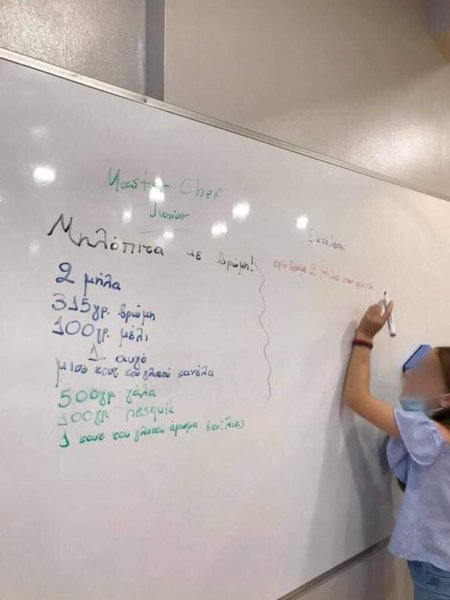 Master Chef
Junior
Μηλόπιτα με βρώμη!
2 μήλα
315γρ. βρώμη
100γρ. μέλι
1 αυγό
μισό κουτ του γλυκού κανέλα
500γρ γάλα
100γρ
1 κουτ του γλυκού άρωμα βανίλιας
Εκτέλεση
τρίβουμε 2 μήλα στον